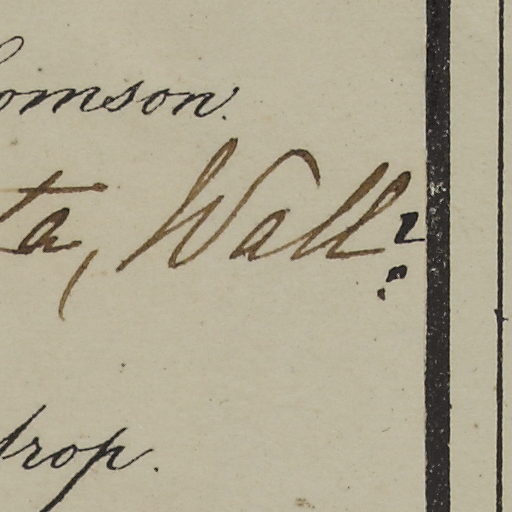 omson.
ta, Wall?
trop.